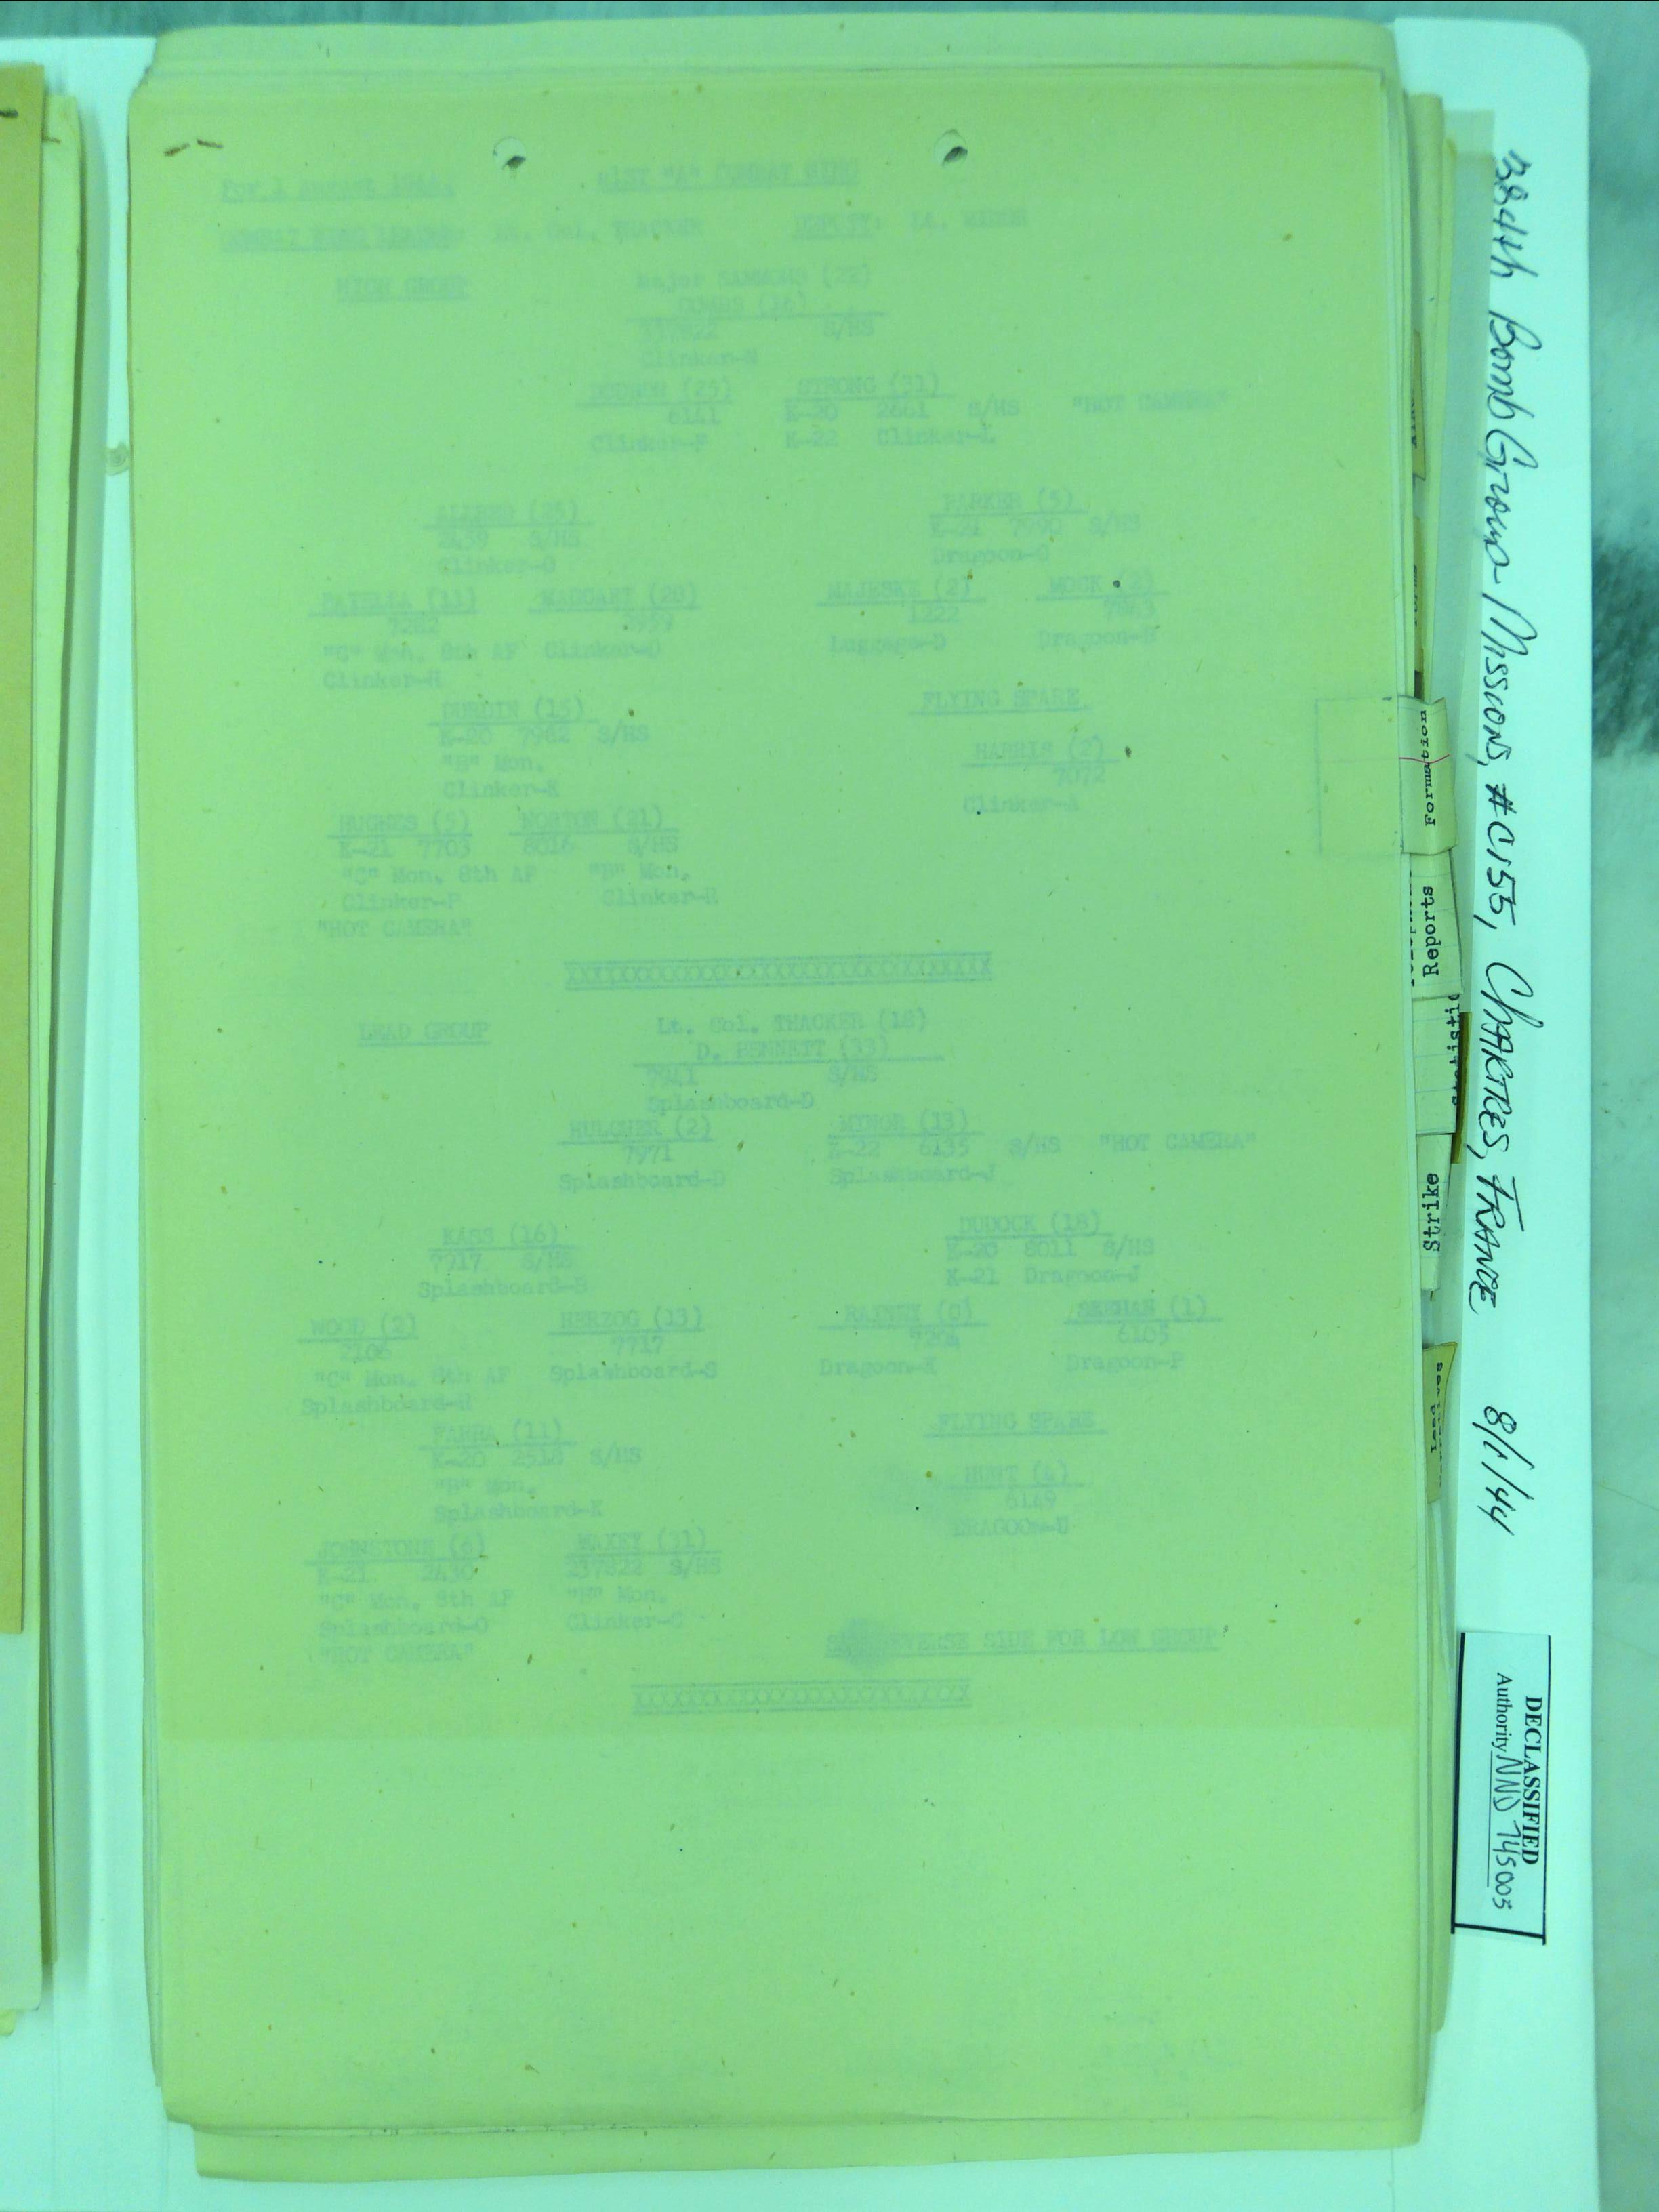 For 1 August 1944. 41ST "A" COMBAT WING
COMBAT WING LEADER: Lt. Col. THACKER DEPUTY: Lt.
HIGH GROUP Major (22)
COMBS (16)
237822 S/HS
Clinker-N
DODSON (25) STRONG (31)
6141 K-20 2661 S/HS "HOT CAMERA"
Clinker-F K-22 Clinker-L
ALLRED (25) PARKER (5)
2459 S/HS K-21 7990 S/HS
Clinker-G Dragoon-O
(11) MAGGART (20) MAJESKE (2) MOCK (2)
7282 1222
"C" Mon. 8th AF Clinker-O Luggage-D Dragoon-
Clinker-H
DURDIN (15) FLYING SPARE
K-20 7982 S/HS HARRIS (2)
"B" Mon. 7072
Clinker-K Clinker-A
HUGHES (5) NORTON (21)
K-21 7703 8016 S/HS
"C" Mon. 8th AF "B" Mon.
Clinker-P Clinker-R
"HOT CAMERA"
LEAD GROUP Lt. Col. THACKER (18)
D. BENNETT (33)
7941 S/HS
Splashboard-D
HULCHER (2) (13)
7971 K-22 6135 S/HS "HOT CAMERA"
Splashboard-D Splashboard-J
KASS (16) DUDOCK (18)
7917 S/HS K-20 8011 S/HS
Splashboard- K-21 Dragoon-J
WOOD (2) HERZOG (13) RAINEY (0) (1)
2106 7717 7204 6105
"C" Mon. 8th AF Splashboard-S Dragoon-K Dragoon-P
Splashboard-R
FARRA (11) FLYING SPARE
K-20 2518 S/HS
"B" Mon. HUNT (4)
Splashboard-K 6149
DRAGOON-U
JOHNSTONE (6) MAXEY (31)
K-21 2430 237822 S/HS
"C" Mon. 8th AF "B" Mon.
Splashboard-O Clinker-C
"HOT CAMERA" SEE REVERSE SIDE FOR LOW GROUP
384th Bomb Group - Missions, #C155, CHARTRES, FRANCE 8/1/44
Formation
Reports
Strike
DECLASSIFIED
Authority NND 745005